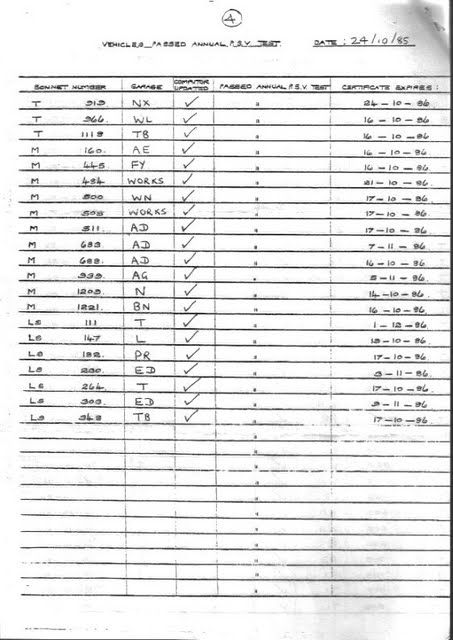 4
VEHICLES PASSED ANNUAL P.S.V. TEST. DATE: 24/10/85
BONNET NUMBER GARAGE COMPUTOR UPDATED PASSED ANNUAL P.S.V. TEST CERTIFICATE EXPIRES:
T 913 NX ✓ " 24-10-86
T 966 WL ✓ " 16-10-86
T 1113 TB ✓ " 16-10-86
M 160. AE ✓ " 16-10-86
M 445. FY ✓ " 16-10-86
M 484 WORKS ✓ " 21-10-86
M 500 WN ✓ " 17-10-86
M 503 WORKS ✓ " 17-10-86
M 511. AD ✓ " 17-10-86
M 683 AD ✓ " 7-11-86
M 688. AD ✓ " 16-10-86
M 939. AG ✓ " 5-11-86
M 1203. N ✓ " 14-10-86
M 1221. BN ✓ " 16-10-86
LS 111 T ✓ " 1-12-86
LS 147 L ✓ " 13-10-86
LS 192. PR ✓ " 17-10-86
LS 230. ED ✓ " 3-11-86
LS 264. T ✓ " 17-10-86
LS 303. ED ✓ " 3-11-86
LS 343 TB ✓ " 17-10-86
"
"
"
"
"
"
"
"
"
"